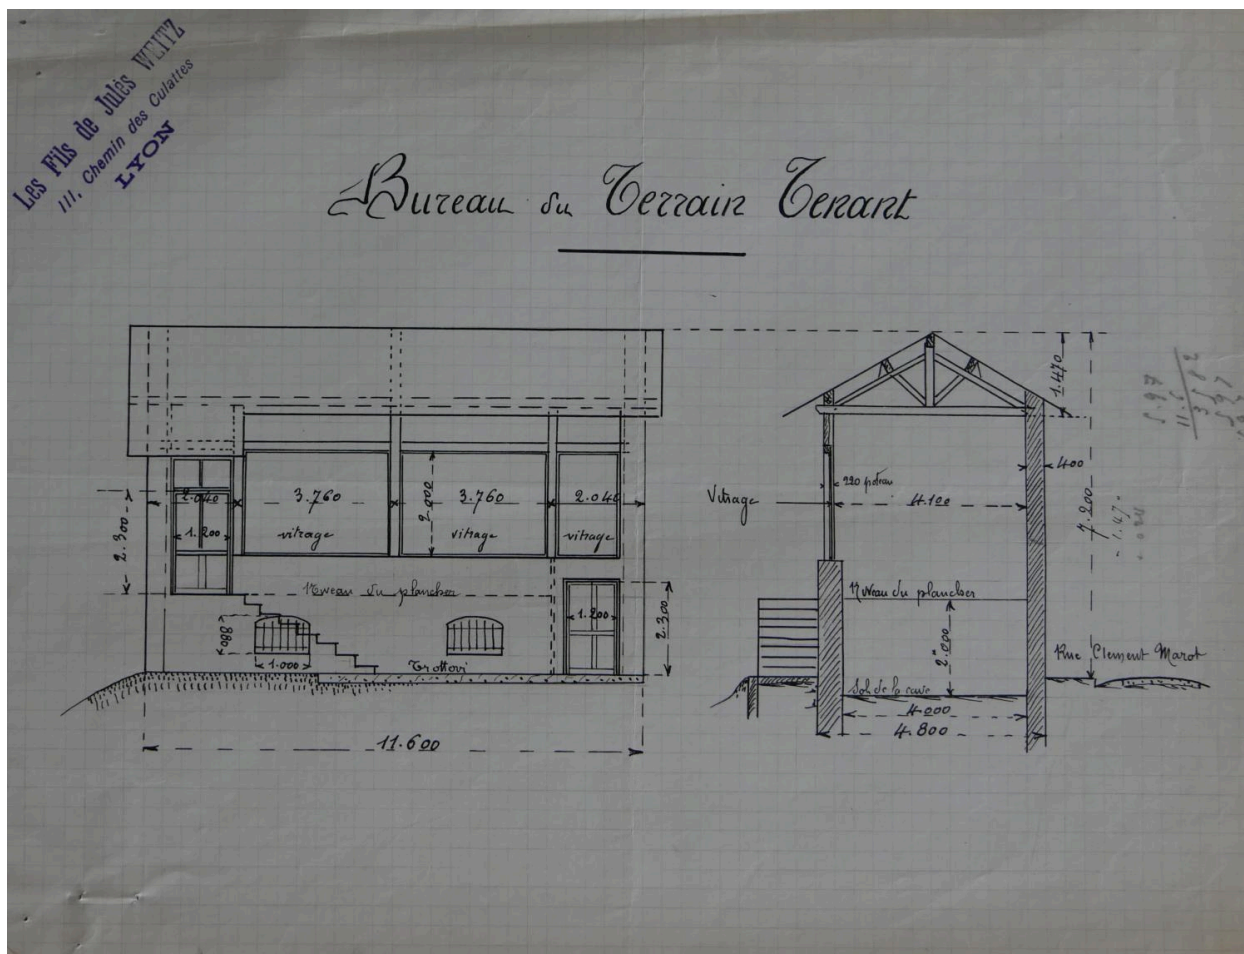 Les Fils de Jules WEITZ
111, Chemin des Culattes
LYON
Bureau du Terrain Tenant
2.040
3.760
3.760
2.040
2.000
1.200
vitrage
vitrage
vitrage
2.300
Niveau du plancher
880
1.000
Trottoi
1.200
2.300
11.600
1.470
400
220 poteau
Vitrage
4.180
7.200
Niveau du plancher
2m000
Rue Clement Marot
Sol de la cave
4.000
4.800
- 1.47 -